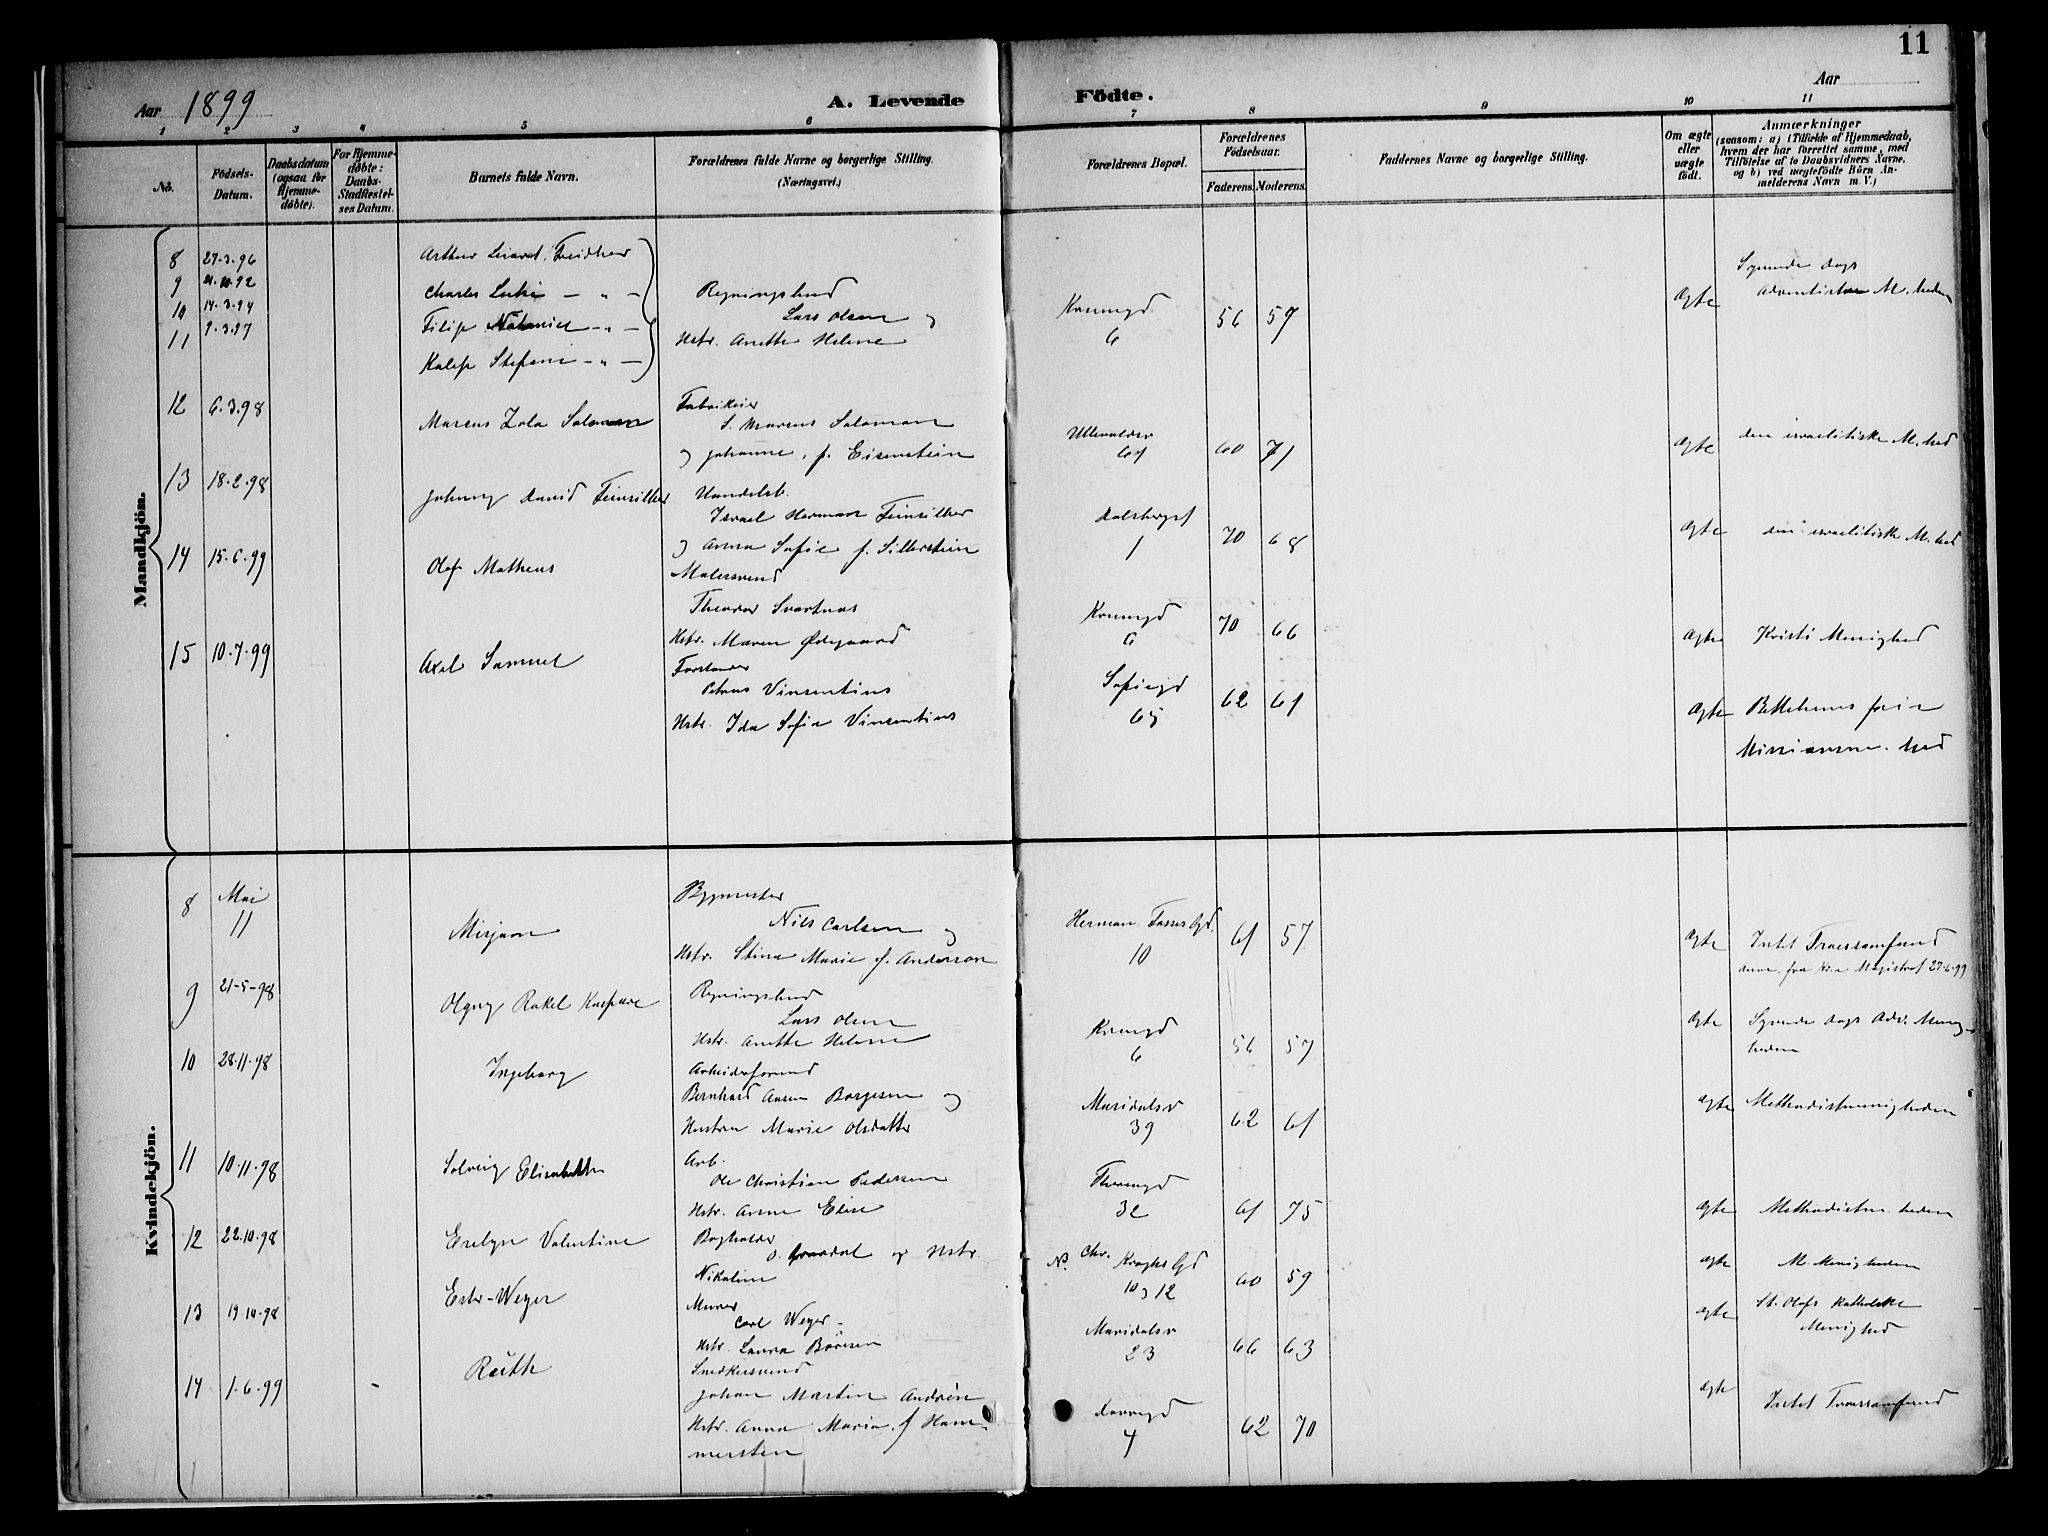 11
Aar 1899
A. Levende Födte.
Aar
1 2 3 4 5 6 7 8 9 10 11
No.
Födsels-Datum.
Daabsdatum (ogsaa for Hjemmedøbte).
For Hjemmedøbte: Daabs-Stadfæstelses Datum.
Barnets fulde Navn.
Forældrenes fulde Navne og borgerlige Stilling.
(Næringsvei.)
Forældrenes Bopæl.
Forældrenes Födselsaar.
Faderens. Moderens.
Faddernes Navne og borgerlige Stilling.
Om ægte eller uægte födt.
Anmærkninger
(saasom: a) i Tilfælde af Hjemmedaab, hvem der har forrettet samme, med Tilföielse af to Daabsvidners Navne. og b) ved uægtefödte Börn Anmelderens Navn m. V.)
Mandkjön.
8 27-3-96 Arthur
9 92 Charles
10 14-3-94 Filip
11 9-3-97 Stefani
Lars Olsen og
Hstr. Anette Helene
6
56 59
Ægte
Syvende dags
Adventist M.heden
12 6.3.98 Marcus Zola Salaman
S. Marcus Salaman
og Johanne, f. Eisenstein
64
60 71
Ægte
den israelitiske M.hed
13 18.2.98 Johnny David Feinsilber
Handelsb.
Israel Herman Feinsilber
og Anna Sofie f. Silberstein
Dalsbergst
1
70 68
Ægte
den israelitiske M.hed
14 15.6.99 Olaf Matheus
Malersvend
Theodor Svartnas
Hstr. Maren Ødegaard
6
70 66
Ægte
Kristi Menighed
15 10.7.99 Axel Samuel
Forstander
Petrus Vinsentius
Hstr. Ida Sofia Vinsentius
Sofiegd
65
62 61
Ægte
Betlehems frie
Missionsm.hed
Kvindekjön.
8 Mai 11 Mirjam
Bygmester
Nils Carlsen og
Hstr. Stina Marie f. Anderson
Herman Fossesgd.
10
61 57
Ægte
Intet Troessamfund
anm. fra Kra Magistrat 27-6-99
9 21-5-98 Olgny Rakel Kaspara
Lars Olsen
Hstr. Anette Helene
6
56 57
Ægte
Syvende dags Adv. Menig-
heden
10 28.11.98 Ingeborg
Arbeiderformd
Bernhard Borgesen og
Hustru Marie Olsdatter
Maridalsv
39
62 61
Ægte
Methodistmenigheden
11 10.11.98 Solveig Elisabeth
Arb.
Ole Christian Pedersen
Hstr. Anne Elise
32
61 75
Ægte
Methodistm.heden
12 22.10.98 Evelyn Valentine
Bogholder
O. og Hstr.
Nikoline
Chr. Kroghs Gd
10 og 12
60 59
Ægte
M. Menigheden
13 19.10.98 Ester Weyer
Murer
Carl Weyer
Hstr. Laura Börresen
Maridalsv
23
66 63
Ægte
St. Olafs Katholske
Menighed
14 1.6.99 Ruth
Snedkersvend
Johan Martin Andrén
Hstr. Anna Maria f. Ham-
mersten
4
62 70
Ægte
Intet Troessamfund